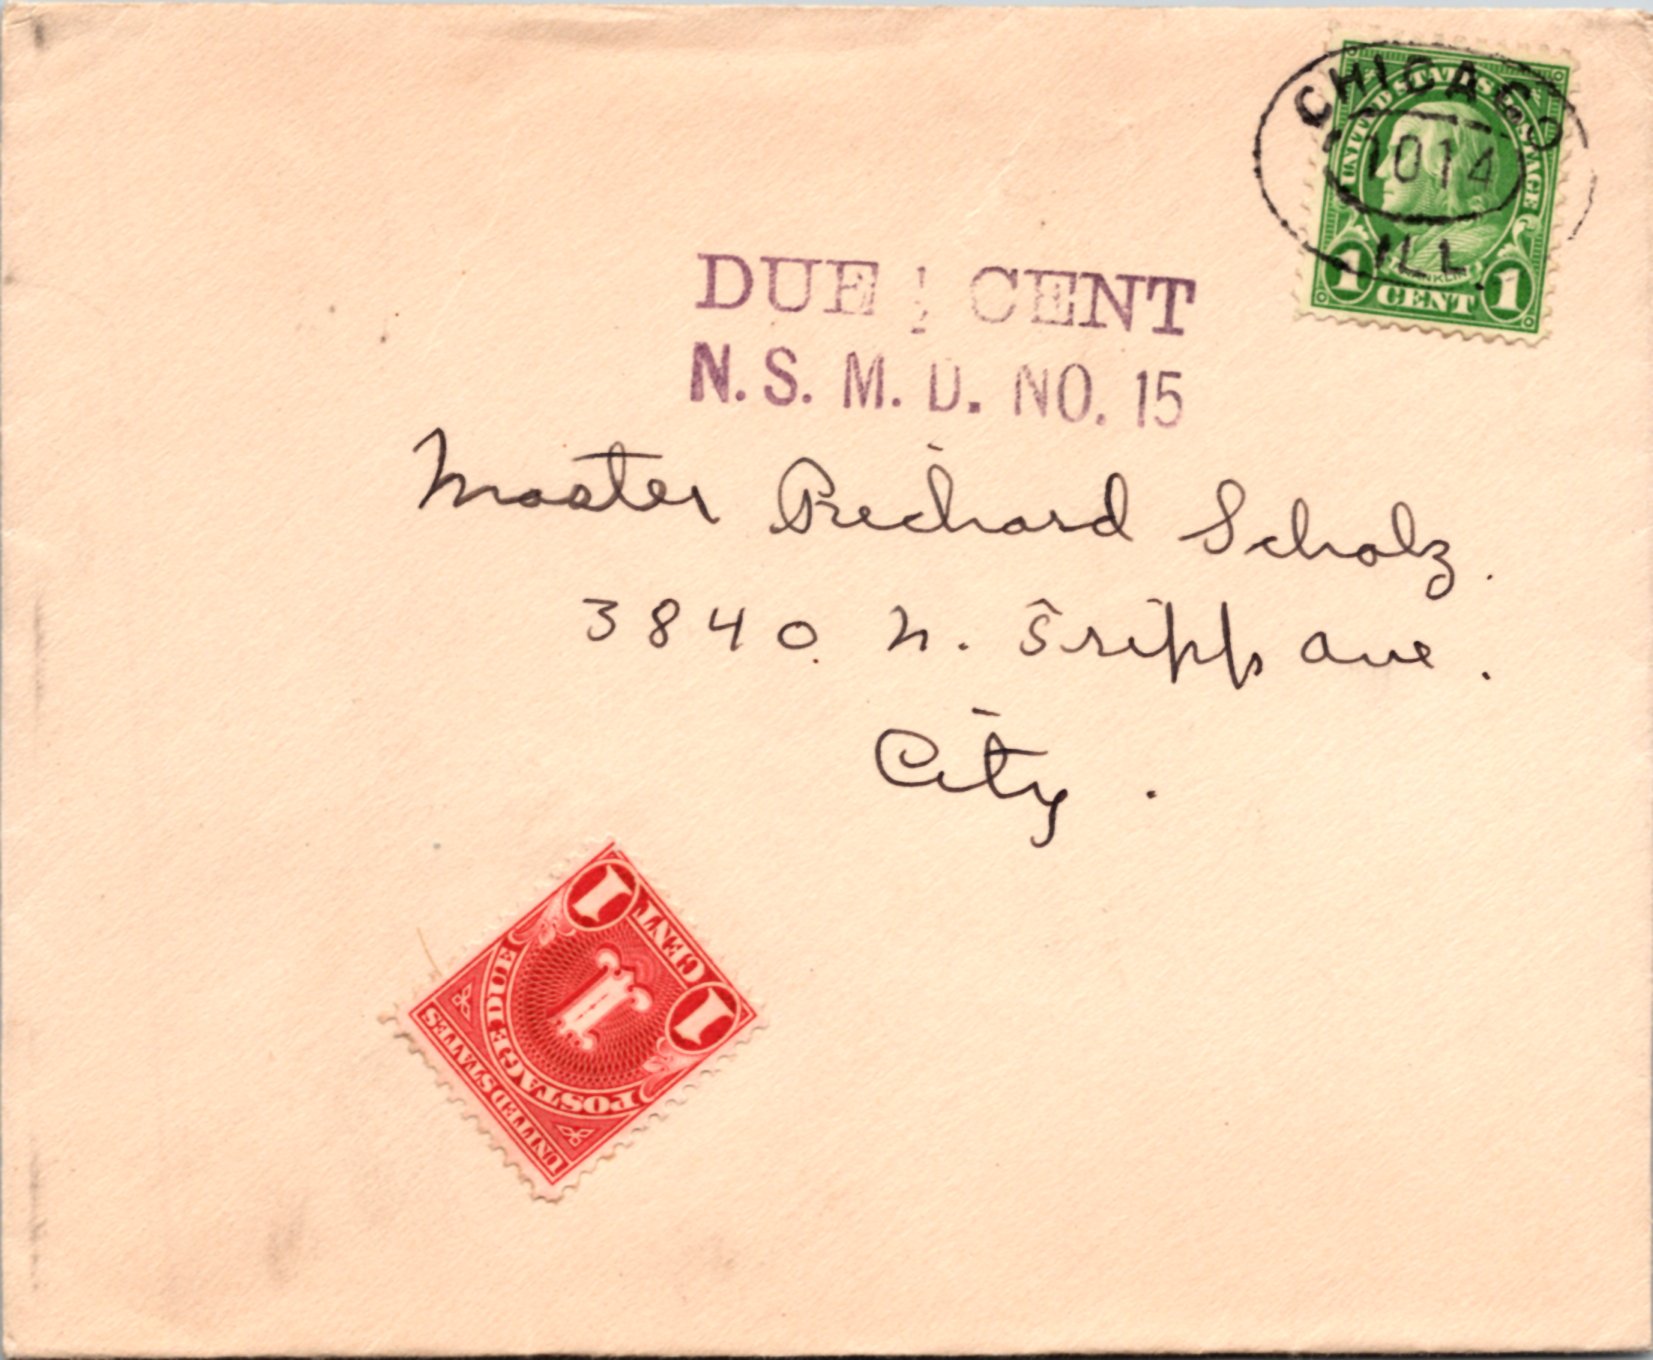 UNITED STATES POSTAGE
CHICAGO
1014
ILL.
FRANKLIN
1 CENT 1
DUE 1/2 CENT
N. S. M. D. NO. 15
Master Richard Scholz.
3840 N. Tripp Ave.
City.
1 CENT 1
1
POSTAGE DUE
UNITED STATES